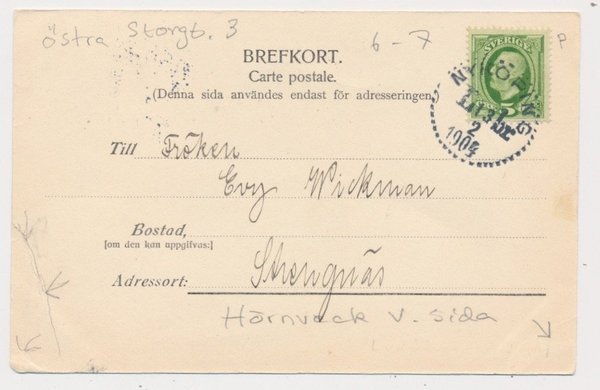 Östra Storgt. 3
6-7
P
BREFKORT.
Carte postale.
(Denna sida användes endast för adresseringen
SVERIGE
NYKÖPING
2
1904
Till Fröken
Evy Wickman
Bostad,
[om den kan uppgifvas:]
Adressort: Strengnäs
Hörnveck v. sida